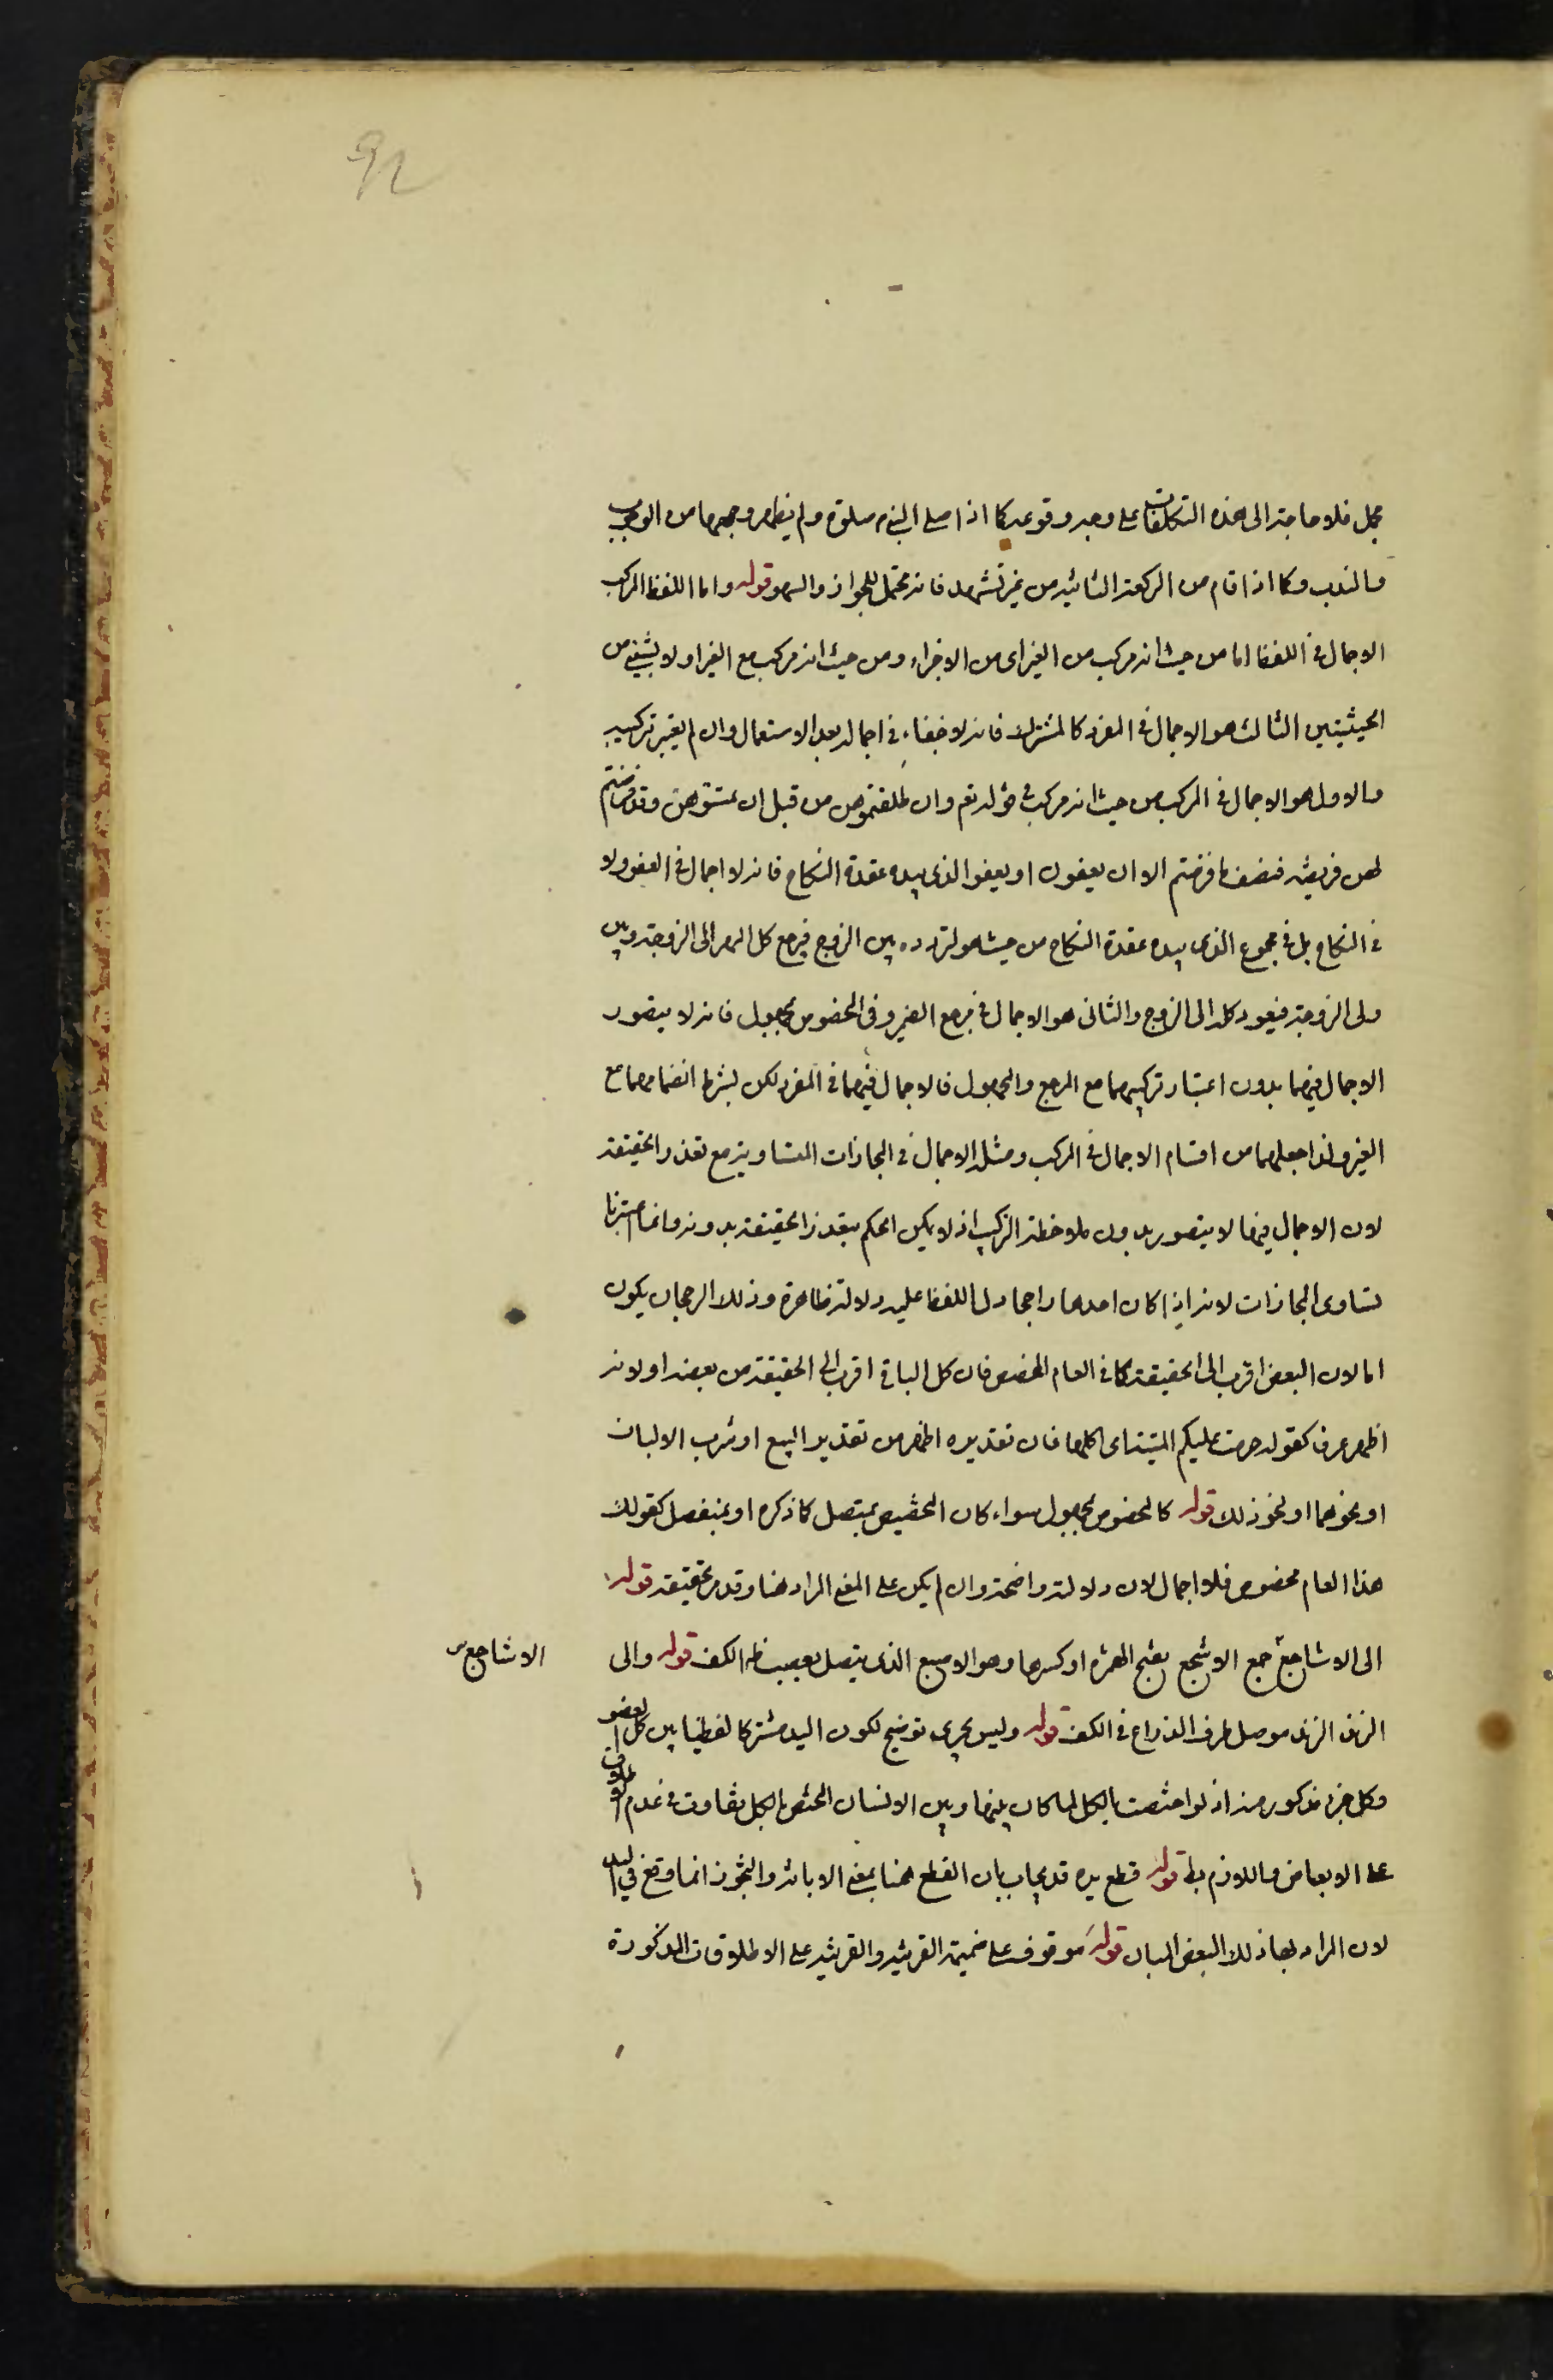 92
مجمل فلا حاجة الى هذه التكلفات على وجه وقوعه كما اذا صلى النبي ص صلوة ولم يظهر وجهها من الوجوب
والندب وكما اذا قام من الركعة الثانية من غير تشهد فانه محتمل للجواز والسهو قوله واما اللفظ المركب
الاجمال في اللفظ اما من حيث انه مركب من الغير اى من الاجزاء ومن حيث انه مركب مع الغير او لا بشئ من
الحيثيتين الثالث هو الاجمال في المفرد كالمشترك فانه لا خفاء في اجماله بعد الاستعمال وان لم يعتبر تركيبه
والاول هو الاجمال في المركب من حيث انه مركب في قوله تعم وان طلقتموهن من قبل ان تمسوهن وقد فرضتم
لهن فريضة فنصف ما فرضتم الا ان يعفون او يعفو الذى بيده عقدة النكاح فانه لا اجمال في العفو ولا
في النكاح بل في مجموع الذى بيده عقدة النكاح من حيث هو لتردده بين الزوج فيرجع كل المهر الى الزوجة وبين
ولى الزوجة فيعود كله الى الزوج والثانى هو الاجمال في مرجع الضمير وفي المخصوص بمجهول فانه لا يتصور
الاجمال فيهما بدون اعتبار تركيبهما مع المرجع والمجهول فالاجمال فيهما في المفرد لكن بشرط انضمامهما مع
الغير ولذا جعلهما من اقسام الاجمال في المركب ومثله الاجمال في المجازات المتساوية مع تعذر الحقيقة
لان الاجمال فيها لا يتصور بدون ملاحظة التركيب اذ لا يمكن الحكم بتعذر الحقيقة بدونه وانما اعتبرنا
تساوى المجازات لانه اذا كان احدها راجحا دل اللفظ عليه دلالة ظاهرة وذلك الرجحان يكون
اما لان البعض اقرب الى الحقيقة كما في العام المخصص فان كل الباقي اقرب الى الحقيقة من بعضه او لانه
اظهر عرفا كقوله حرمت عليكم الميتة اى اكلها فان تقديره اظهر من تقدير البيع او شرب الالبان
او نحوهما او لنحو ذلك قوله كالمخصوص بمجهول سواء كان التخصيص بمتصل كما ذكره او بمنفصل كقولك
هذا العام مخصوص فلا اجمال لان دلالته واضحة وان لم يكن على المعنى المراد هنا وقد مر تحقيقه قوله
الى الاشاجع جمع الاشجع بفتح الهمزة او كسرها وهو الاصبع الذى يتصل بعصب ظهر الكف قوله والى
الاشاجع
الزند الزند موصل طرف الذراع في الكف قوله وليس يجرى توضيح لكون اليد مشتركا لفظيا بين كل العضو
وكل جزء مذكور منه اذ لو اختصت بالكل لما كان بينها وبين الانسان المختص بالكل تفاوت في عدم اطلاق
على الابعاض واللازم بط قوله قطع يده قد يجاب بان القطع هنا بمعنى الابانة والتجوز انما وقع في اليد
لان المراد بها ذلك البعض المبان قوله موقوف على ضميمة القرينة والقرينة على الاطلاقات المذكورة